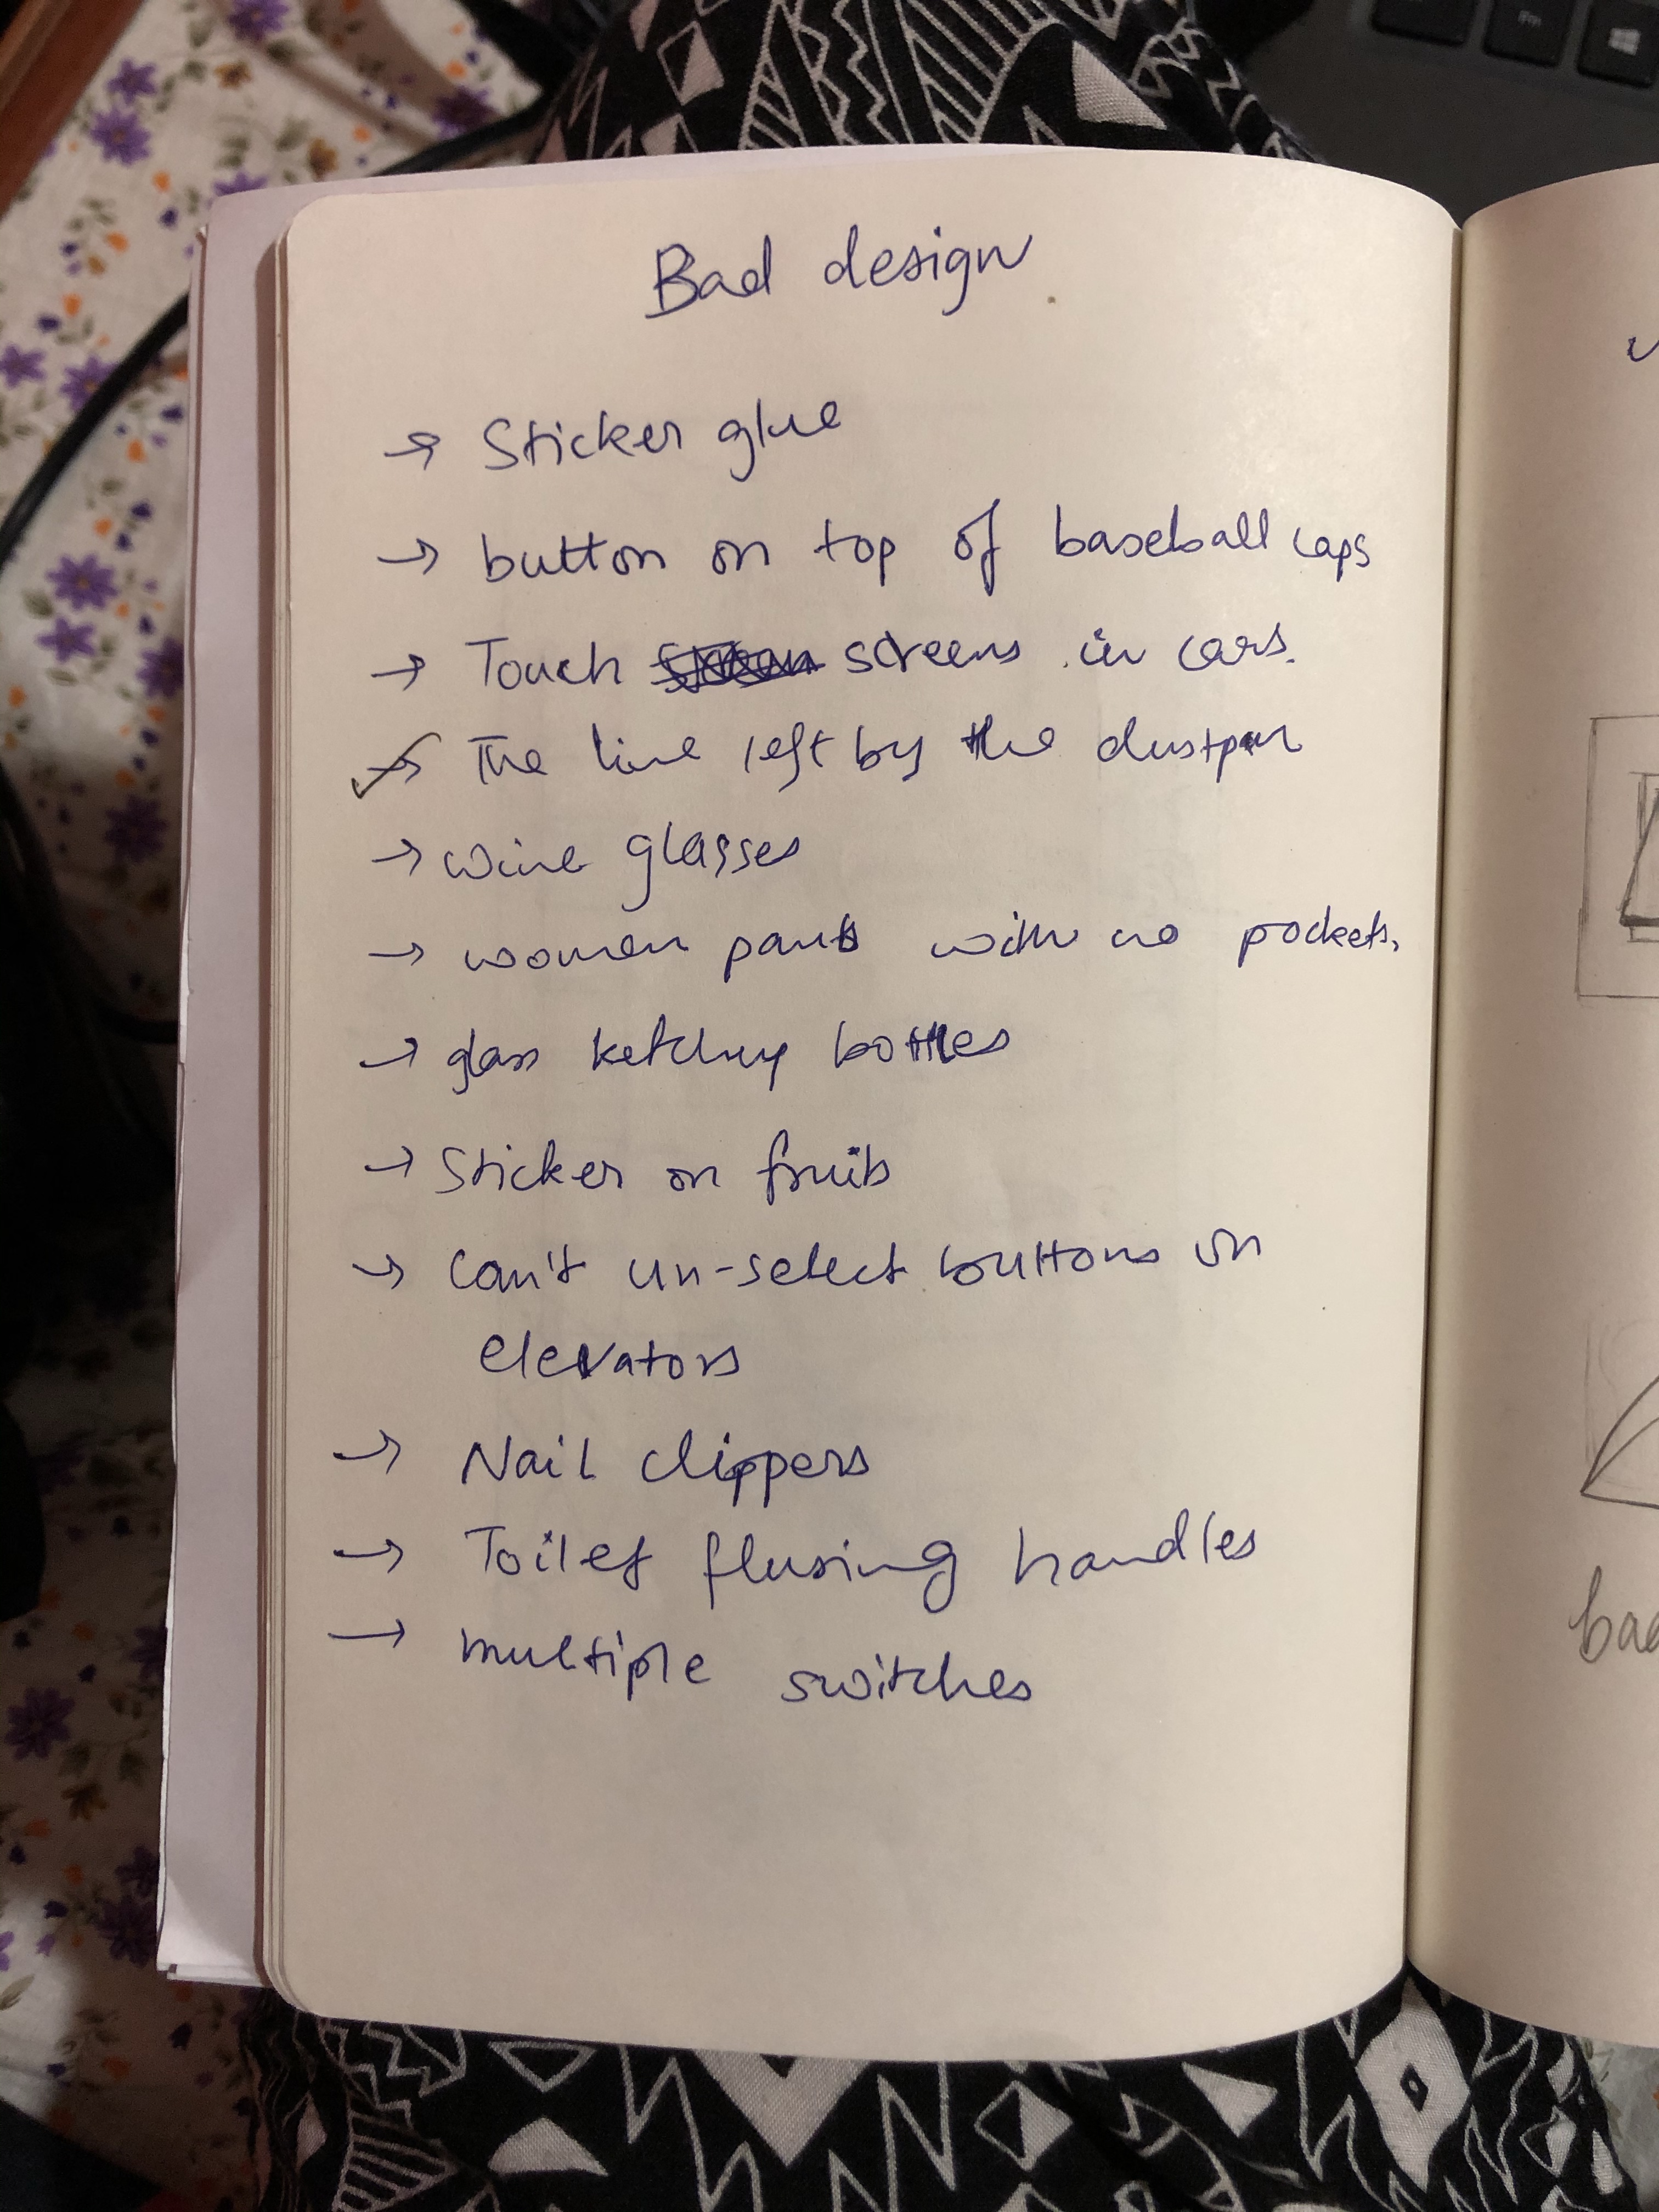 Bad design
→ Sticker glue
→ button on top of baseball caps
→ Touch screens in cars.
→ The line left by the dustpan
→ wine glasses
→ women pants with no pockets.
→ glass ketchup bottles
→ Sticker on fruits
→ Can't un-select buttons on
elevators
→ Nail clippers
→ Toilet flusing handles
→ multiple switches
bad
Fn